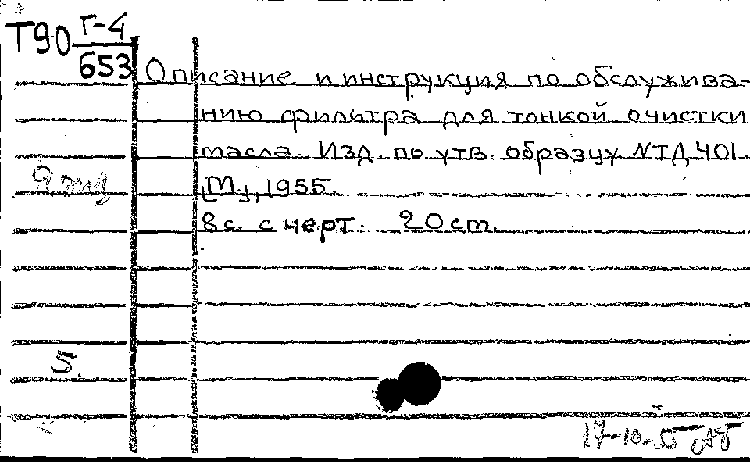 Т90 Г-4
653
Описание и инструкция по обслужива-
нию фильтра для тонкой очистки
масла. Изд. по утв. образцу NТД 401
[М], 1955.
8 с. с черт. 20 cm.
2 экз
5.
17-10-55